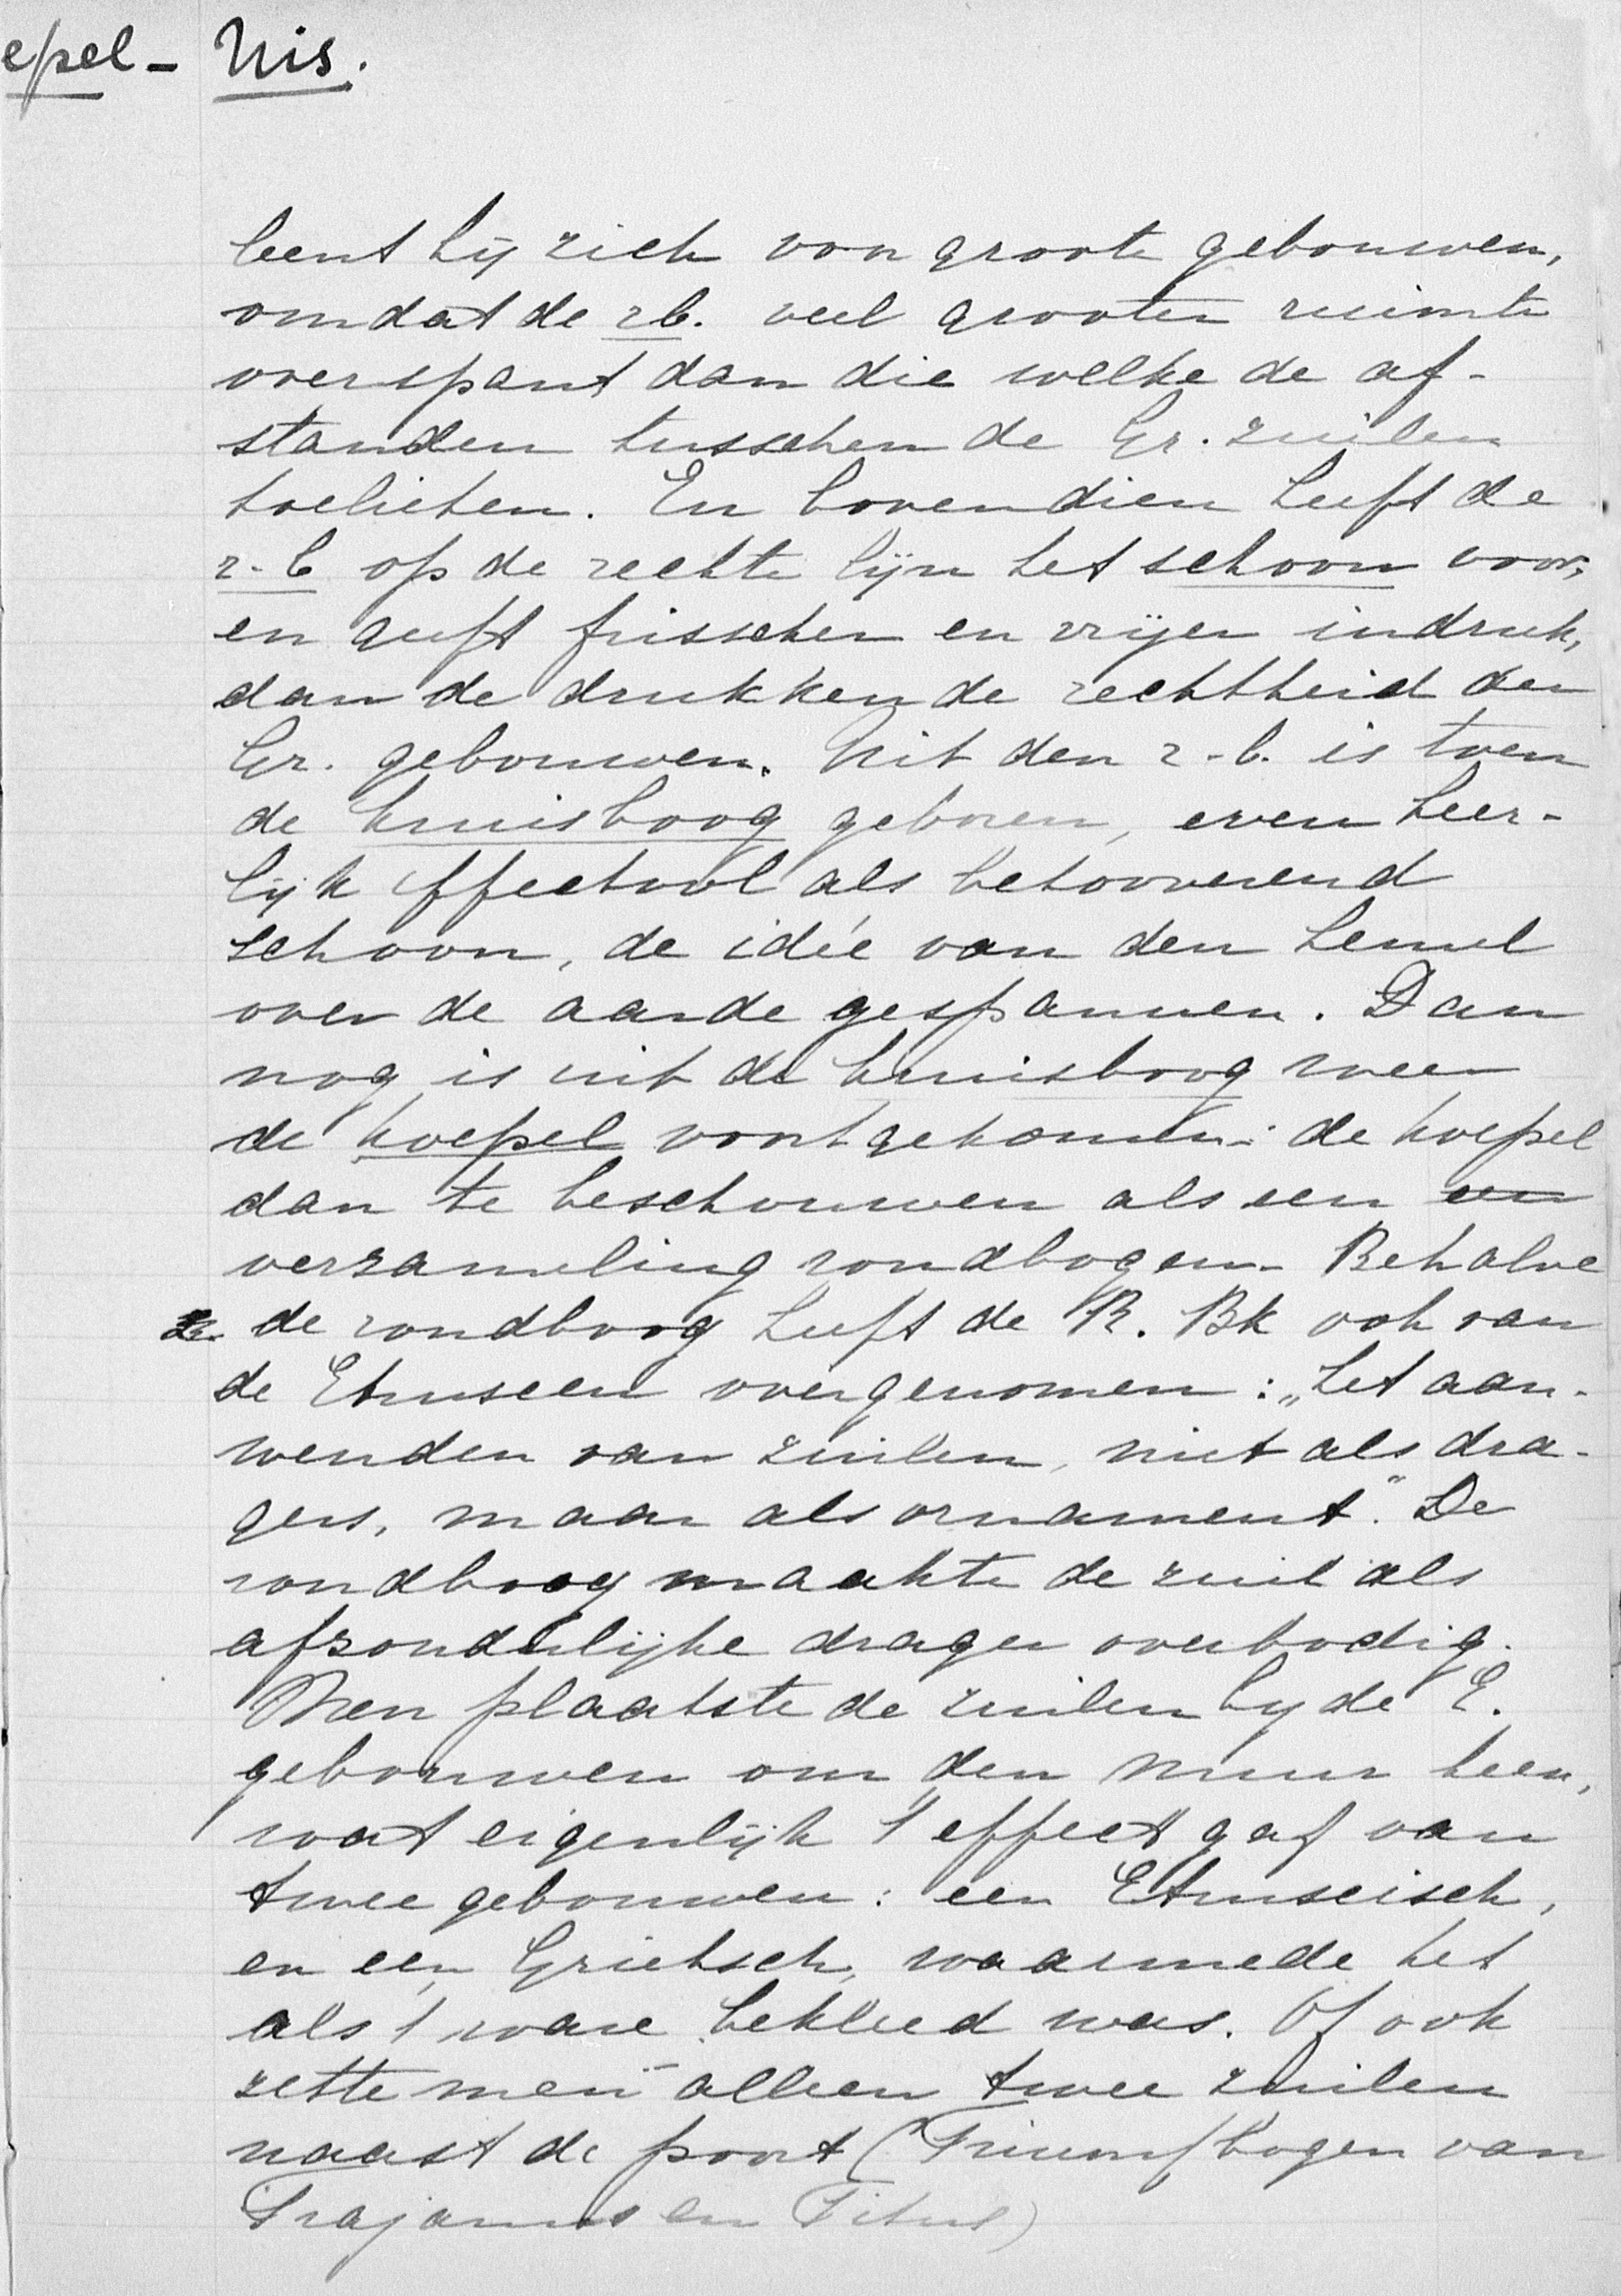 epel - Nis.
leent hij zich voor groote gebouwen,
omdat de rb. veel grooter ruimte
overspant dan die welke de af-
standen tusschen de Gr. zuilen
toelieten. En bovendien heeft de
r-b op de rechte lijn het schoon voor,
en geeft frisscher en vrijer indruk,
dan de drukkende rechtheid der
Gr. gebouwen. Uit den r-b. is toen
de kruisboog geboren, even heer-
lijk effectvol als betooverend
schoon, de idée van den hemel
over de aarde gespannen. Dan
nog is uit de kruisboog weer
de koepel voortgekomen: de koepel
dan te beschouwen als een een
verzameling rondbogen. Behalve
de rondboog heeft de R. Bk ook van
de Etruscen overgenomen: „het aan-
wenden van zuilen, niet als dra-
gers, maar als ornament". De
rondboog maakte de zuil als
afzonderlijke drager overbodig.
Men plaatste de zuilen by de E.
gebouwen om den muur heen,
wat eigenlijk 't effect gaf van
twee gebouwen: een Etruscisch,
en een Grieksch, waarmede het
als 't ware bekleed was. Of ook
zette men alleen twee zuilen
naast de poort (Triumfbogen van
Trajanus en Titus)